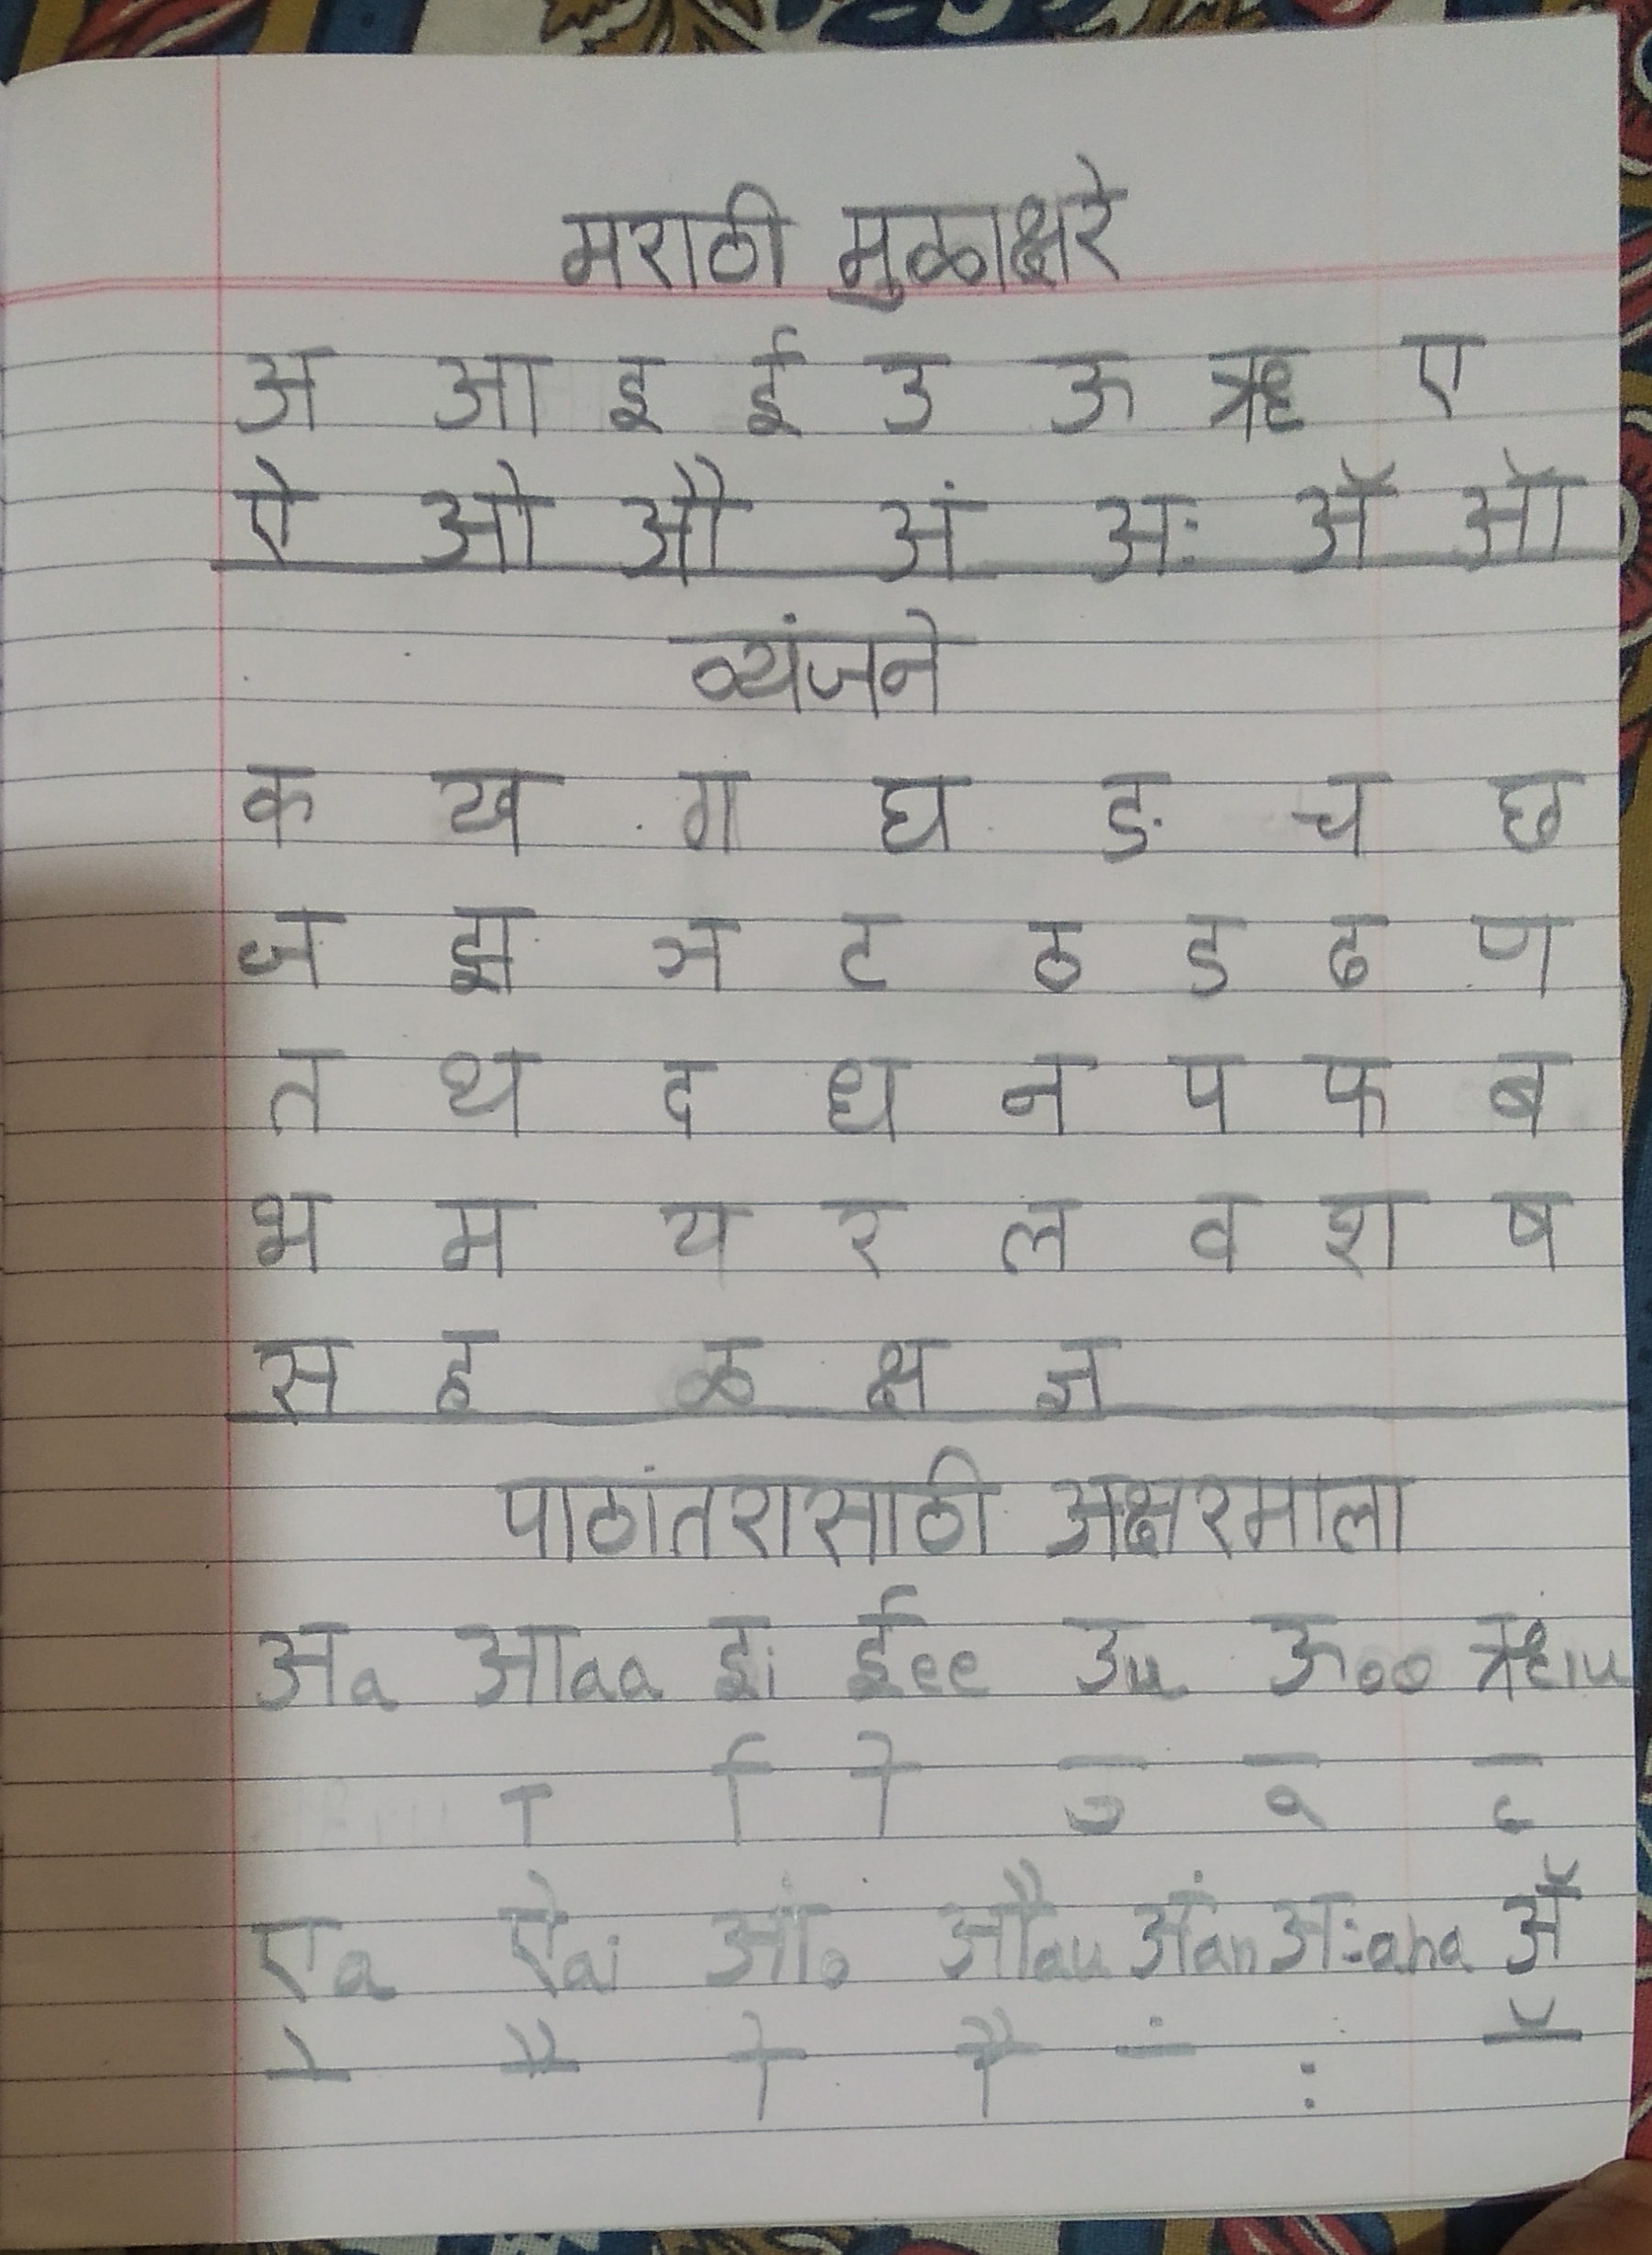 मराठी मुळाक्षरे
अ आ इ ई उ ऊ ऋ ए
ऐ ओ औ अं अः ॲ ऑ
व्यंजने
क ख ग घ ङ च छ
ज झ ञ ट ठ ड ढ ण
त थ द ध न प फ ब
भ म य र ल व श ष
स ह ळ क्ष ज्ञ
पाठांतरासाठी अक्षरमाला
अa आaa इi ईee उu ऊoo ऋru
ा ि ी ु ू ृ
एa ऐai ओo औau अंan अःaha ॲ
े ै ो ौ ं ः ॅ